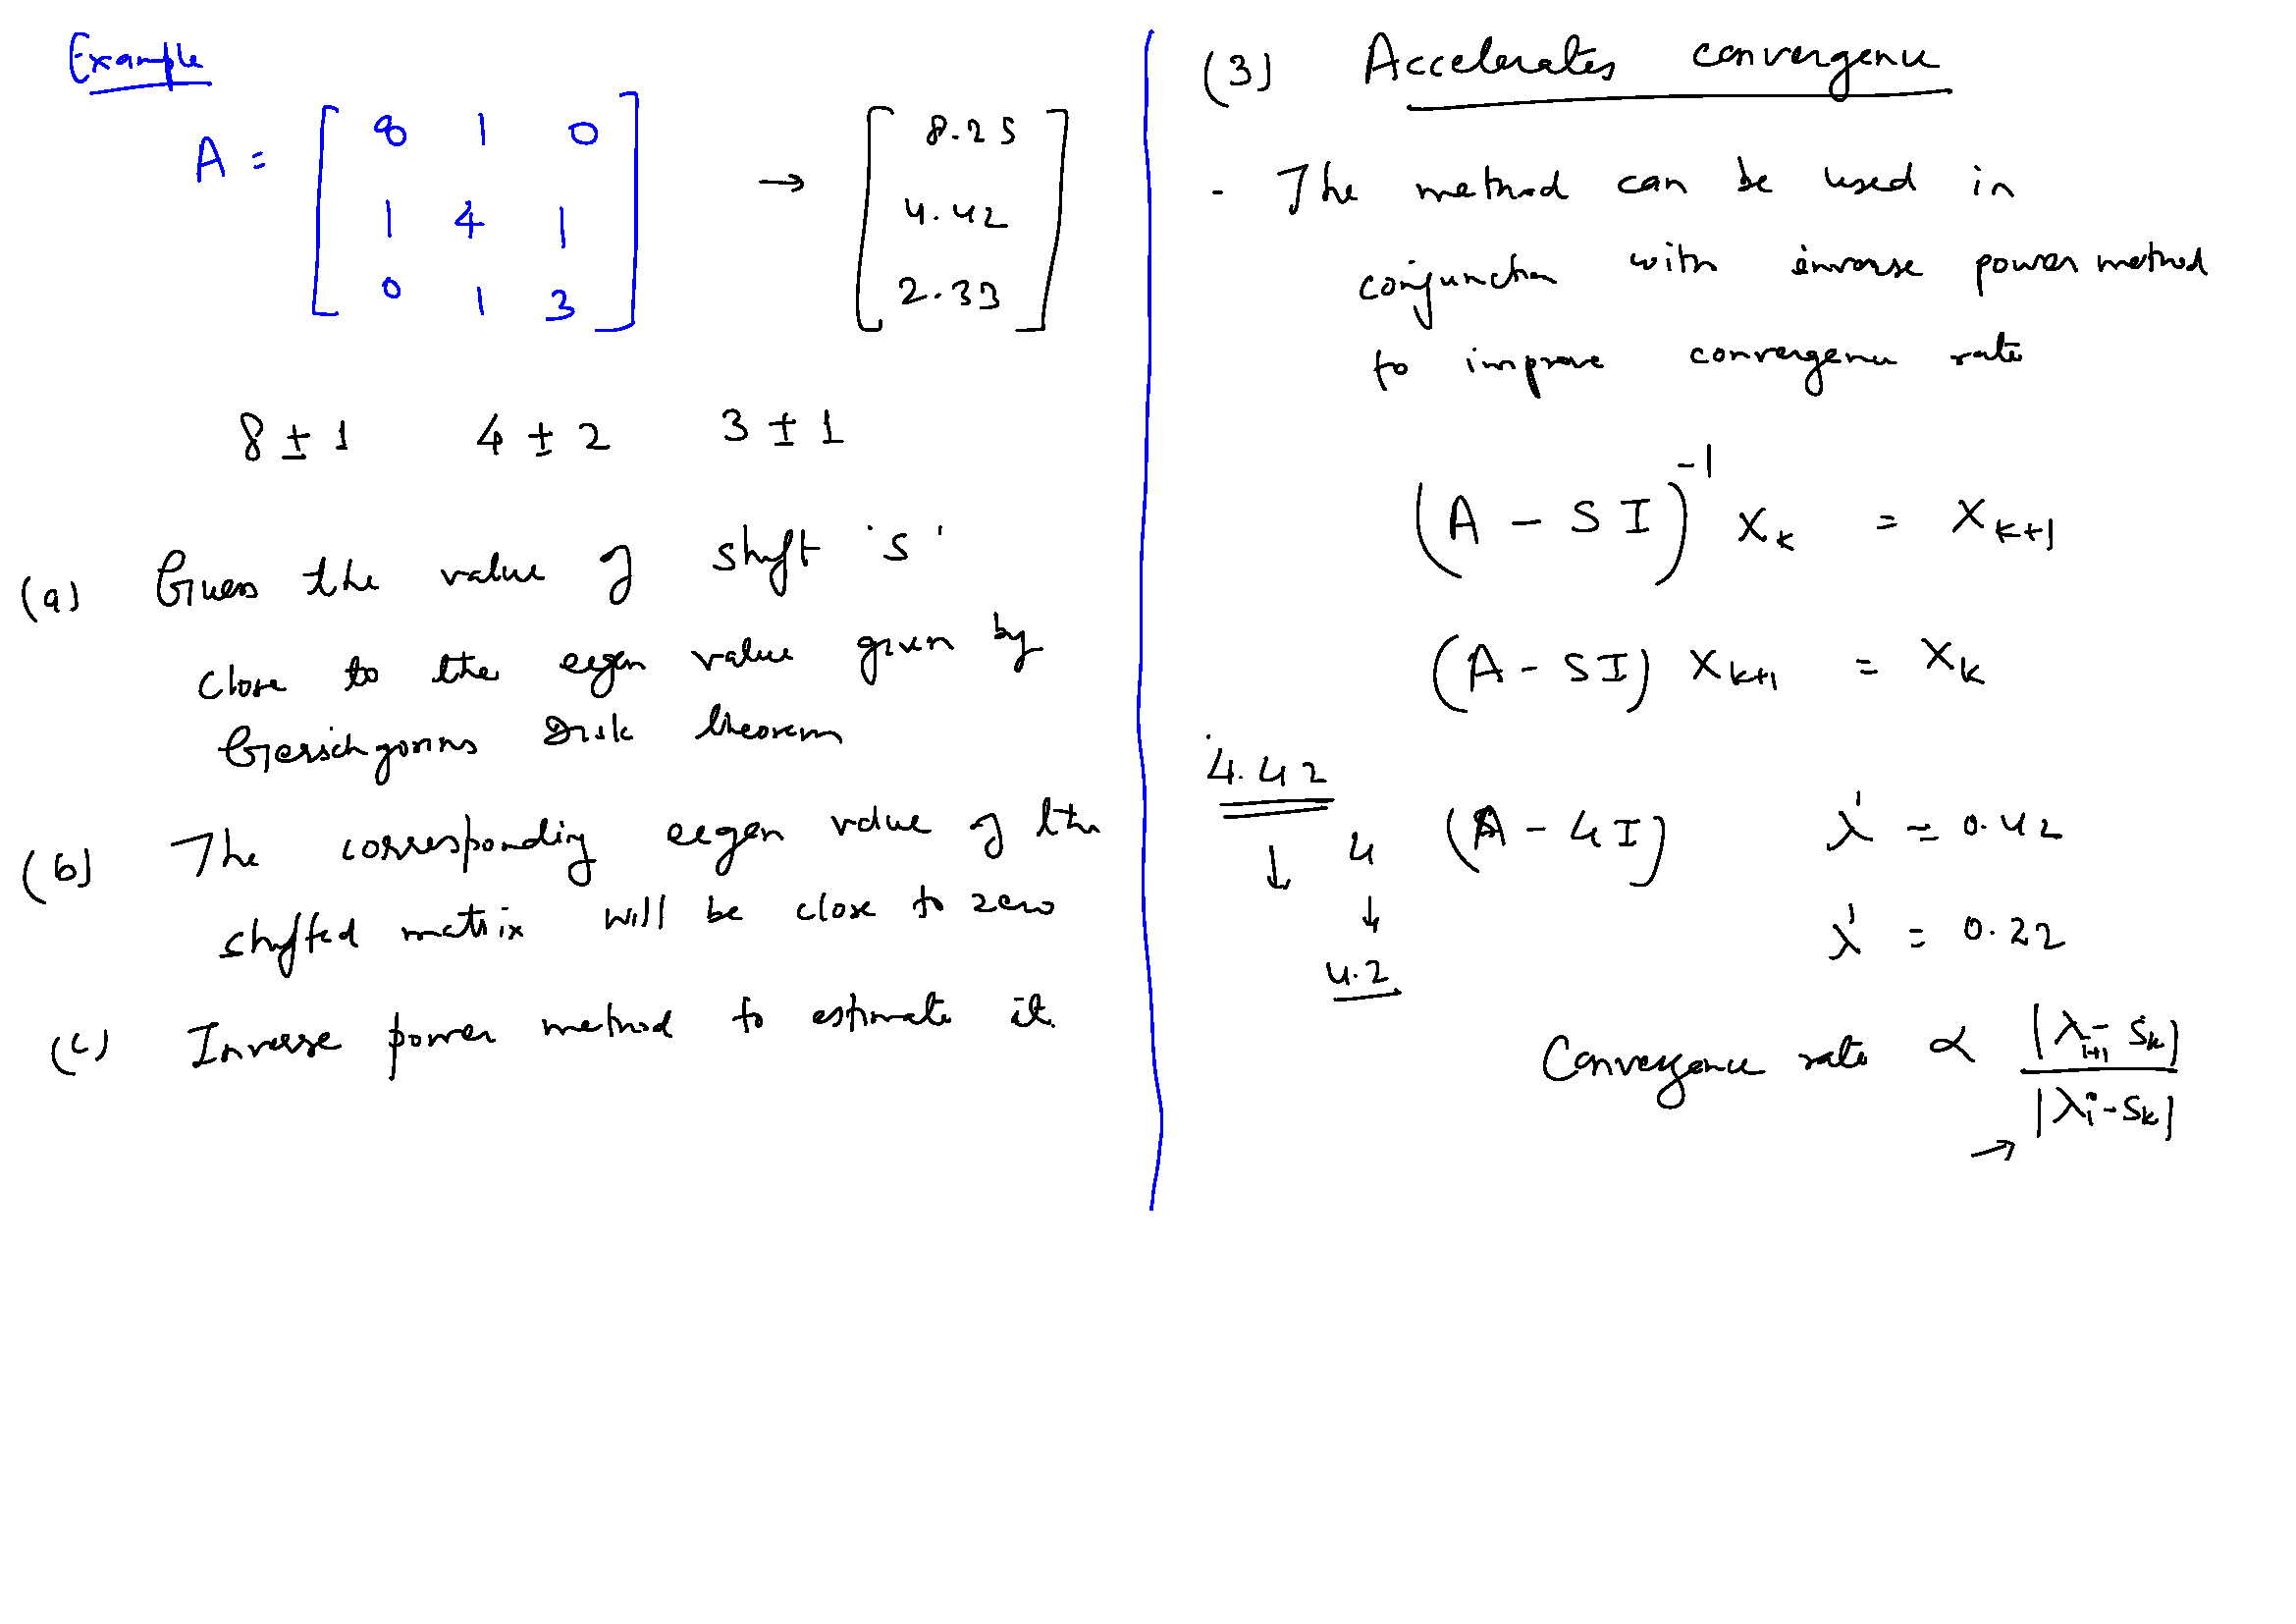 Example
A = [ 8 1 0
1 4 1
0 1 3 ] → [ 8.25
4.42
2.33 ]
8 ± 1 4 ± 2 3 ± 1
(a) Guess the value of shift 's'
close to the eigen value given by
Gerschgorins Disk theorem
(b) The corresponding eigen value of the
shifted matrix will be close to zero
(c) Inverse power method to estimate it.
(3) Accelerates convergence
- The method can be used in
conjunction with inverse power method
to improve convergence rate
(A - SI)⁻¹ Xₖ = Xₖ₊₁
(A - SI) Xₖ₊₁ = Xₖ
4.42
↓ 4 (A - 4I) λ' = 0.42
↓
4.2 λ' = 0.22
Convergence rate ∝ |λᵢ₊₁ - Sₖ|
→ |λᵢ - Sₖ|